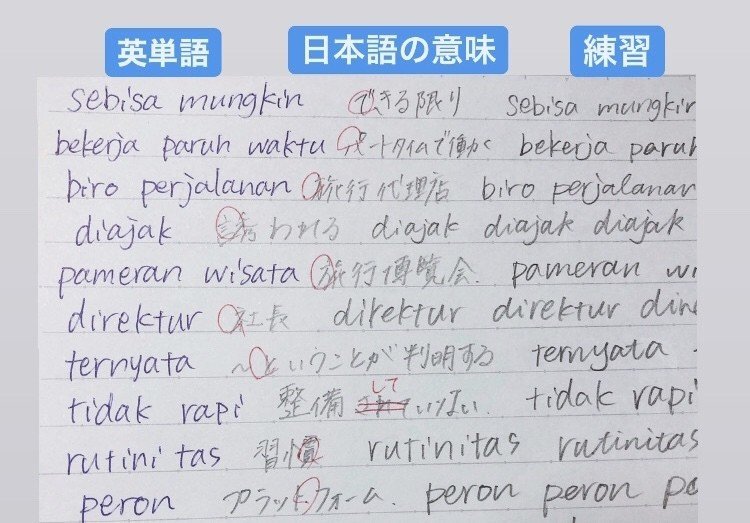 英単語 日本語の意味 練習
sebisa mungkin できる限り sebisa mungkin
bekerja paruh waktu パートタイムで働く bekerja paruh
biro perjalanan 旅行代理店 biro perjalanan
diajak 誘われる diajak diajak diajak
pameran wisata 旅行博覧会. pameran wi
direktur 社長 direktur direktur dire
ternyata 〜ということが判明する ternyata
tidak rapi 整備 して いない. tidak rapi
rutinitas 習慣 rutinitas rutinitas
peron プラットフォーム. peron peron pe